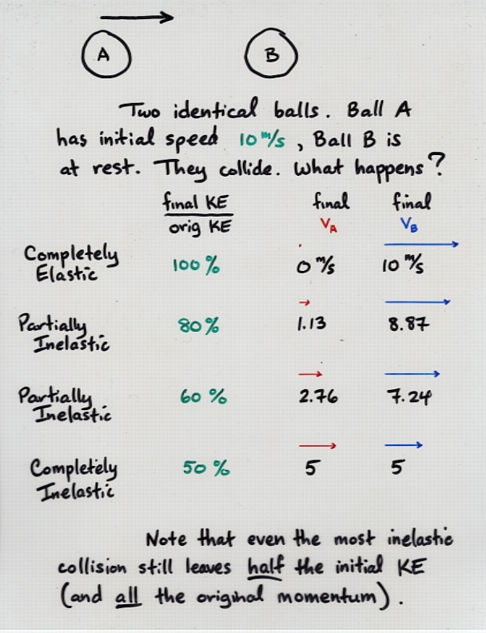 A B
Two identical balls. Ball A
has initial speed 10 m/s, Ball B is
at rest. They collide. What happens?
final KE final final
orig KE VA VB
Completely
Elastic 100% 0 m/s 10 m/s
Partially
Inelastic 80% 1.13 8.87
Partially
Inelastic 60% 2.76 7.24
Completely
Inelastic 50% 5 5
Note that even the most inelastic
collision still leaves half the initial KE
(and all the original momentum).